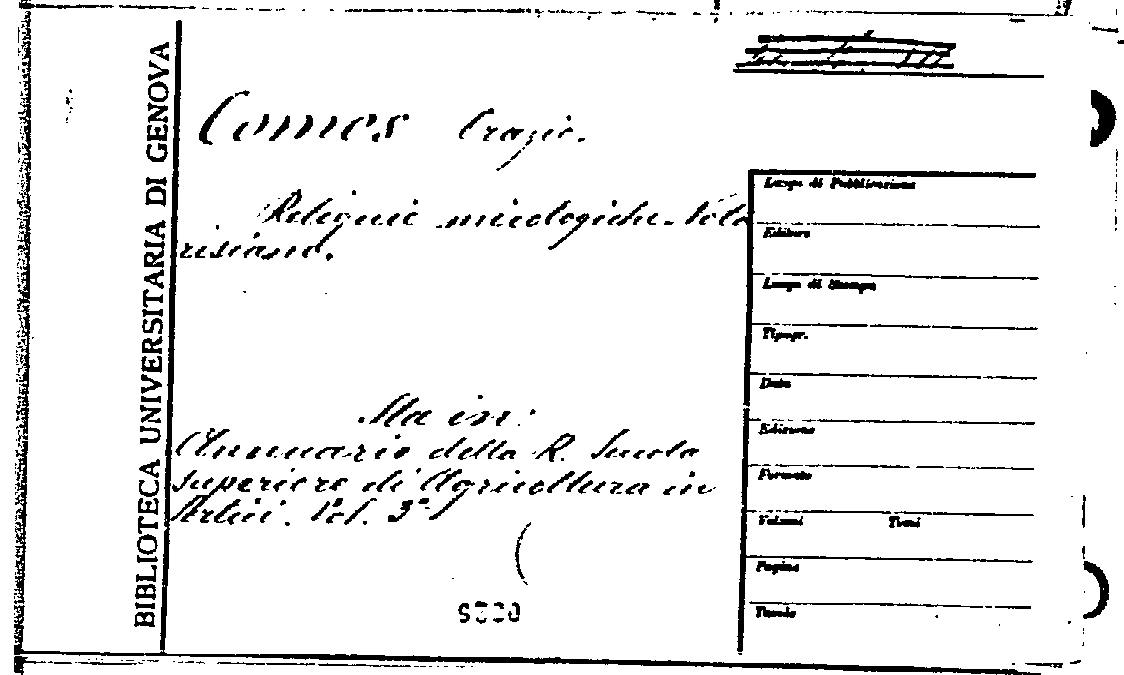 BIBLIOTECA UNIVERSITARIA DI GENOVA
Comes Orazio.
Reliquie micologiche Nota
risiano.
Sta in:
Annuario della R. Scuola
superiore di Agricoltura in
Portici. Vol. 3º
Luogo di Pubblicazione
Editore
Luogo di Stampa
Tipogr.
Data
Edizione
Formato
Volumi Tomi
Pagine
Tavole